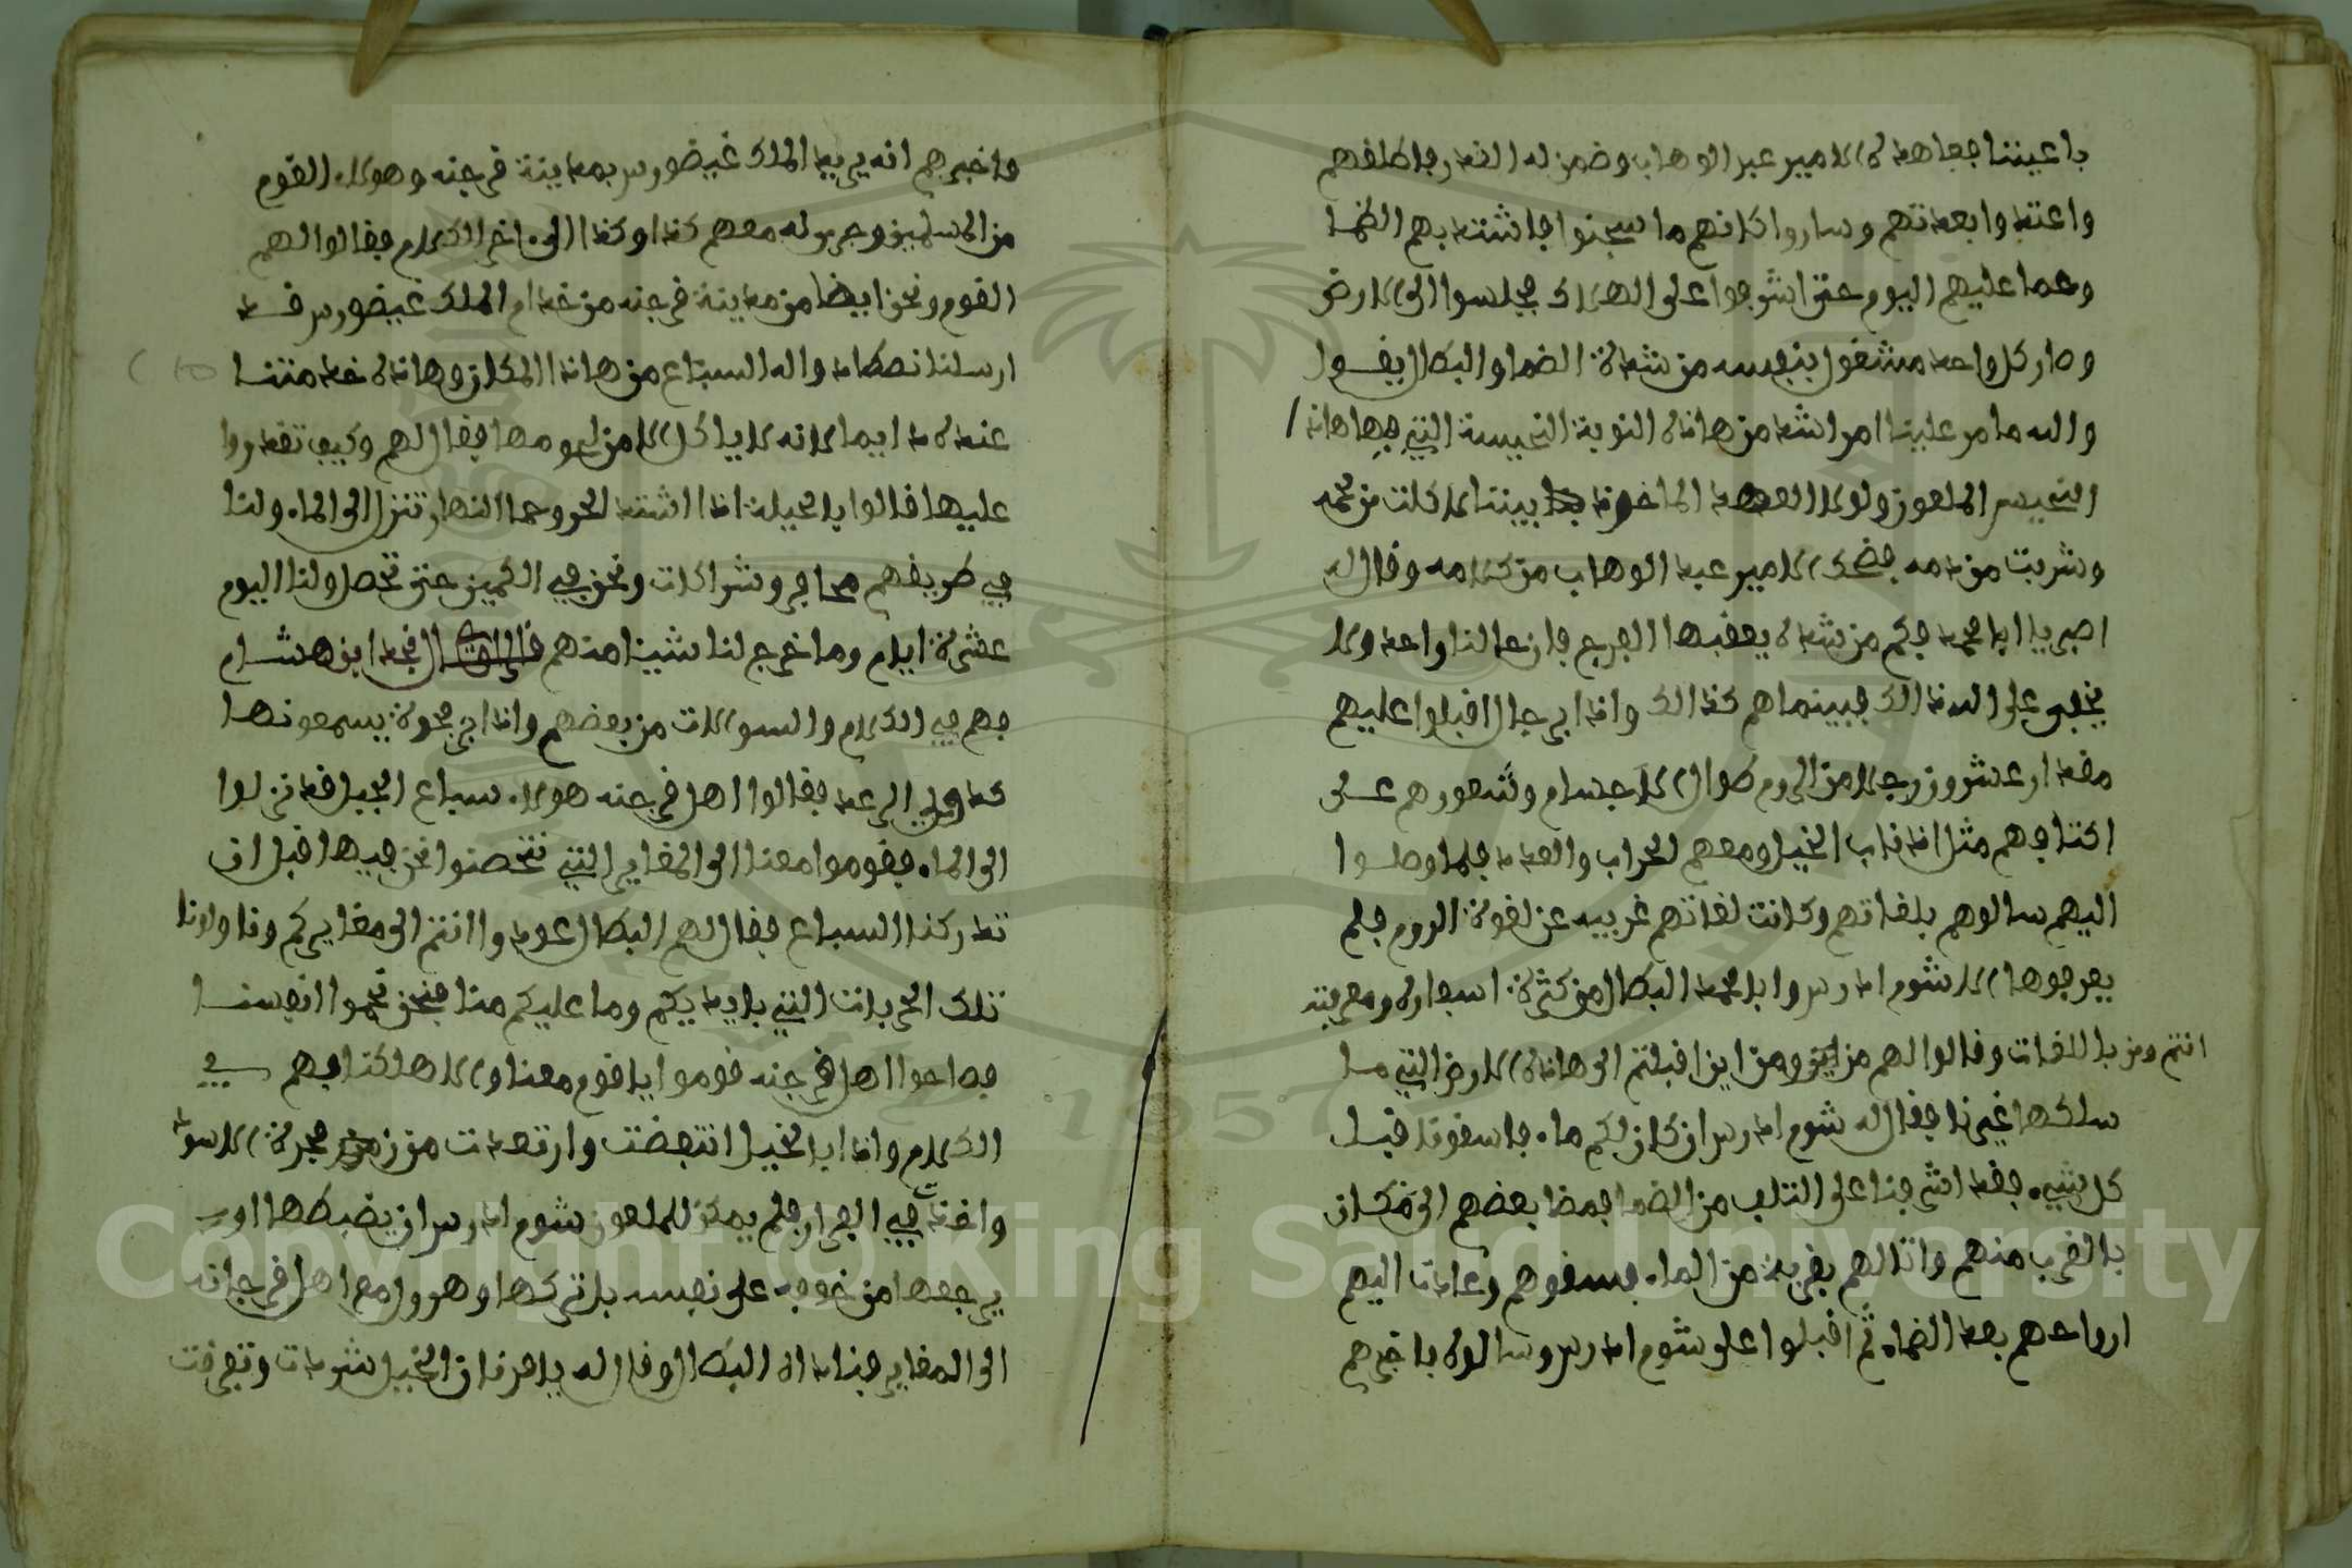 باعيننا فعاهده الامير عبد الوهاب وضمن له الغدر فاطلقهم
واعتدوا بعدتهم وساروا كانهم ما سجنوا فاشتد بهم الظما
وحما عليهم اليوم حتى اشرفوا على الهلاك فجلسوا الى الارض
وصار كل واحد مشغول بنفسه من شدة الضما والبطال يقول
والله ما مر علينا امر اشد من هاذه النوبة النحيسة التي فيها هاذا
النحيس الملعون ولولا العهد الماخوذ بيننا لاكلت من لحمه
وشربت من دمه فضحك الامير عبد الوهاب من كلامه وقال له
اصبر يا ابا محمد فكم من شدة يعقبها الفرج فان عالنا واحد ولا
يخفى على الله ذالك فبينما هم كذالك واذا برجال اقبلوا عليهم
مقدار عشرون رجلا من الروم طوال الاجسام وشعورهم على
اكتافهم مثل اذناب الخيل ومعهم الحراب والعدد فلما وصلوا
اليهم سالوهم بلغاتهم وكانت لغاتهم غريبه عن لغوة الروم فلم
يعرفوها الا شوم ادرس وابا محمد البطال من كثرة اسفاره ومعرفته
باللغات وقالوا لهم من انتم ومن اين اقبلتم الى هاذه الارض التي ما
سلكها غيرنا فقال له شوم ادرس ان كان لكم ماء فاسقونا قبل
كل شيء فقد اشرفنا على التلف من الضما فمضا بعضهم الى مكان
بالقرب منهم واتا لهم بقربة من الماء فسقوهم وعادت اليهم
ارواحهم بعد الضماء ثم اقبلوا على شوم ادرس وسالوه فاخبرهم
واخبرهم انه يريد الملك غيضورس بمدينة فرجنه وهولاء القوم
من المسلمين وجرى له معهم كذا وكذا الى اخر الكلام فقالوا لهم
القوم ونحن ايضا من مدينة فرجنه من خدام الملك غيضورس قد
ارسلنا نصطادوا له السباع من هاذا المكان وهاذه خدمتنا
عنده دايما لانه لا ياكل الا من لحومها فقال لهم وكيف تقدروا
عليها قالوا بالحيلة اذا اشتد الحر وحما النهار تنزل الى الماء ولنا
في طريقهم محافر وشراكات ونحن في الكمين حتى تحصل ولنا اليوم
عشرة ايام وما خرج لنا شيئا منهم قال نجد ابن هشام
فهم في الكلام والسوالات من بعضهم واذا بزعجرة يسمعونها
كدوي الرعد فقالوا اهل فرجنه هولاء سباع الجبل قد نزلوا
الى الماء فقوموا معنا الى المغاير التي نتحصنوا نحن فيها قبل ان
تدركنا السباع فقال لهم البطال عودوا انتم الى مغايركم وناولونا
تلك الحربات التي بايديكم وما عليكم منا فنحن نحموا انفسنا
فصاحوا اهل فرجنه قوموا يا قوم معنا والا هلكنا فهم في
الكلام واذا بالخيل انتفضت وارتعدت من زمجرة الاسود
واخذت في الفرار فلم يمكن للملعون شوم ادرس ان يضبطها او
يرجعها من خوفه على نفسه بل تركها وهرول مع اهل فرجانه
الى المغاير فنادا له البطال وقال له يا قرنان الخيل شردت وتفرقت